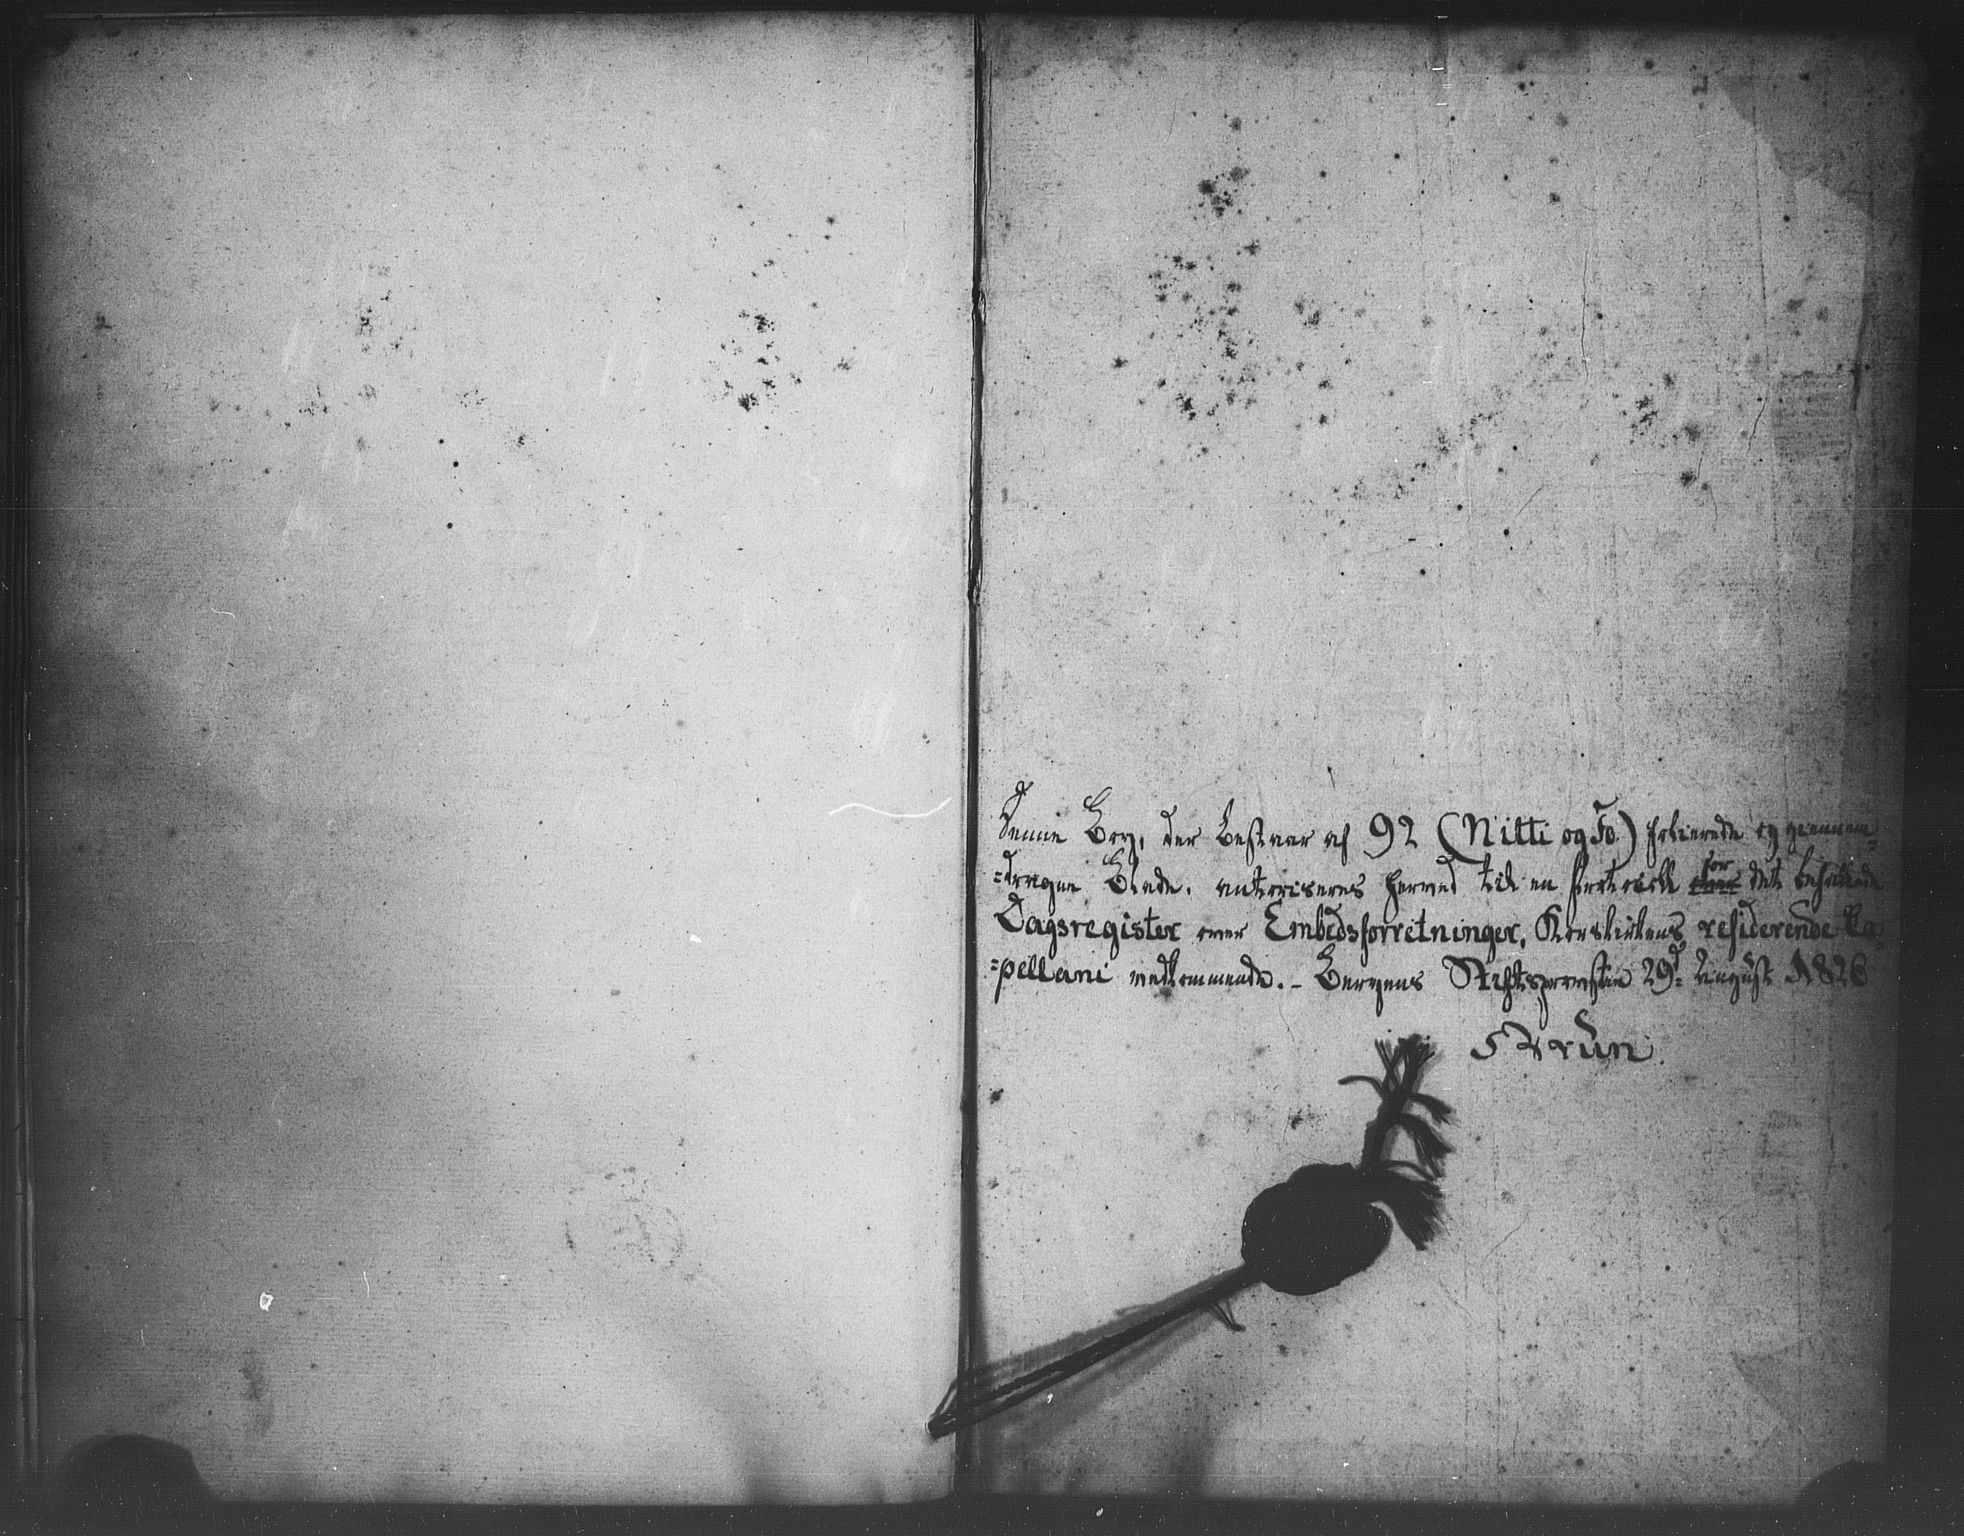 Denne Bog, der bestaaer af 92 (Nitti og To) folierede og giennem-
=dragne Blade, autoriseres herved til en Protocoll for det befalede
Dagsregister over Embedsforretninger, Korskirkens residerende Ca=
=pellani vedkommende. – Bergens Stiftsprovstie 29d: August 1826
Brun.